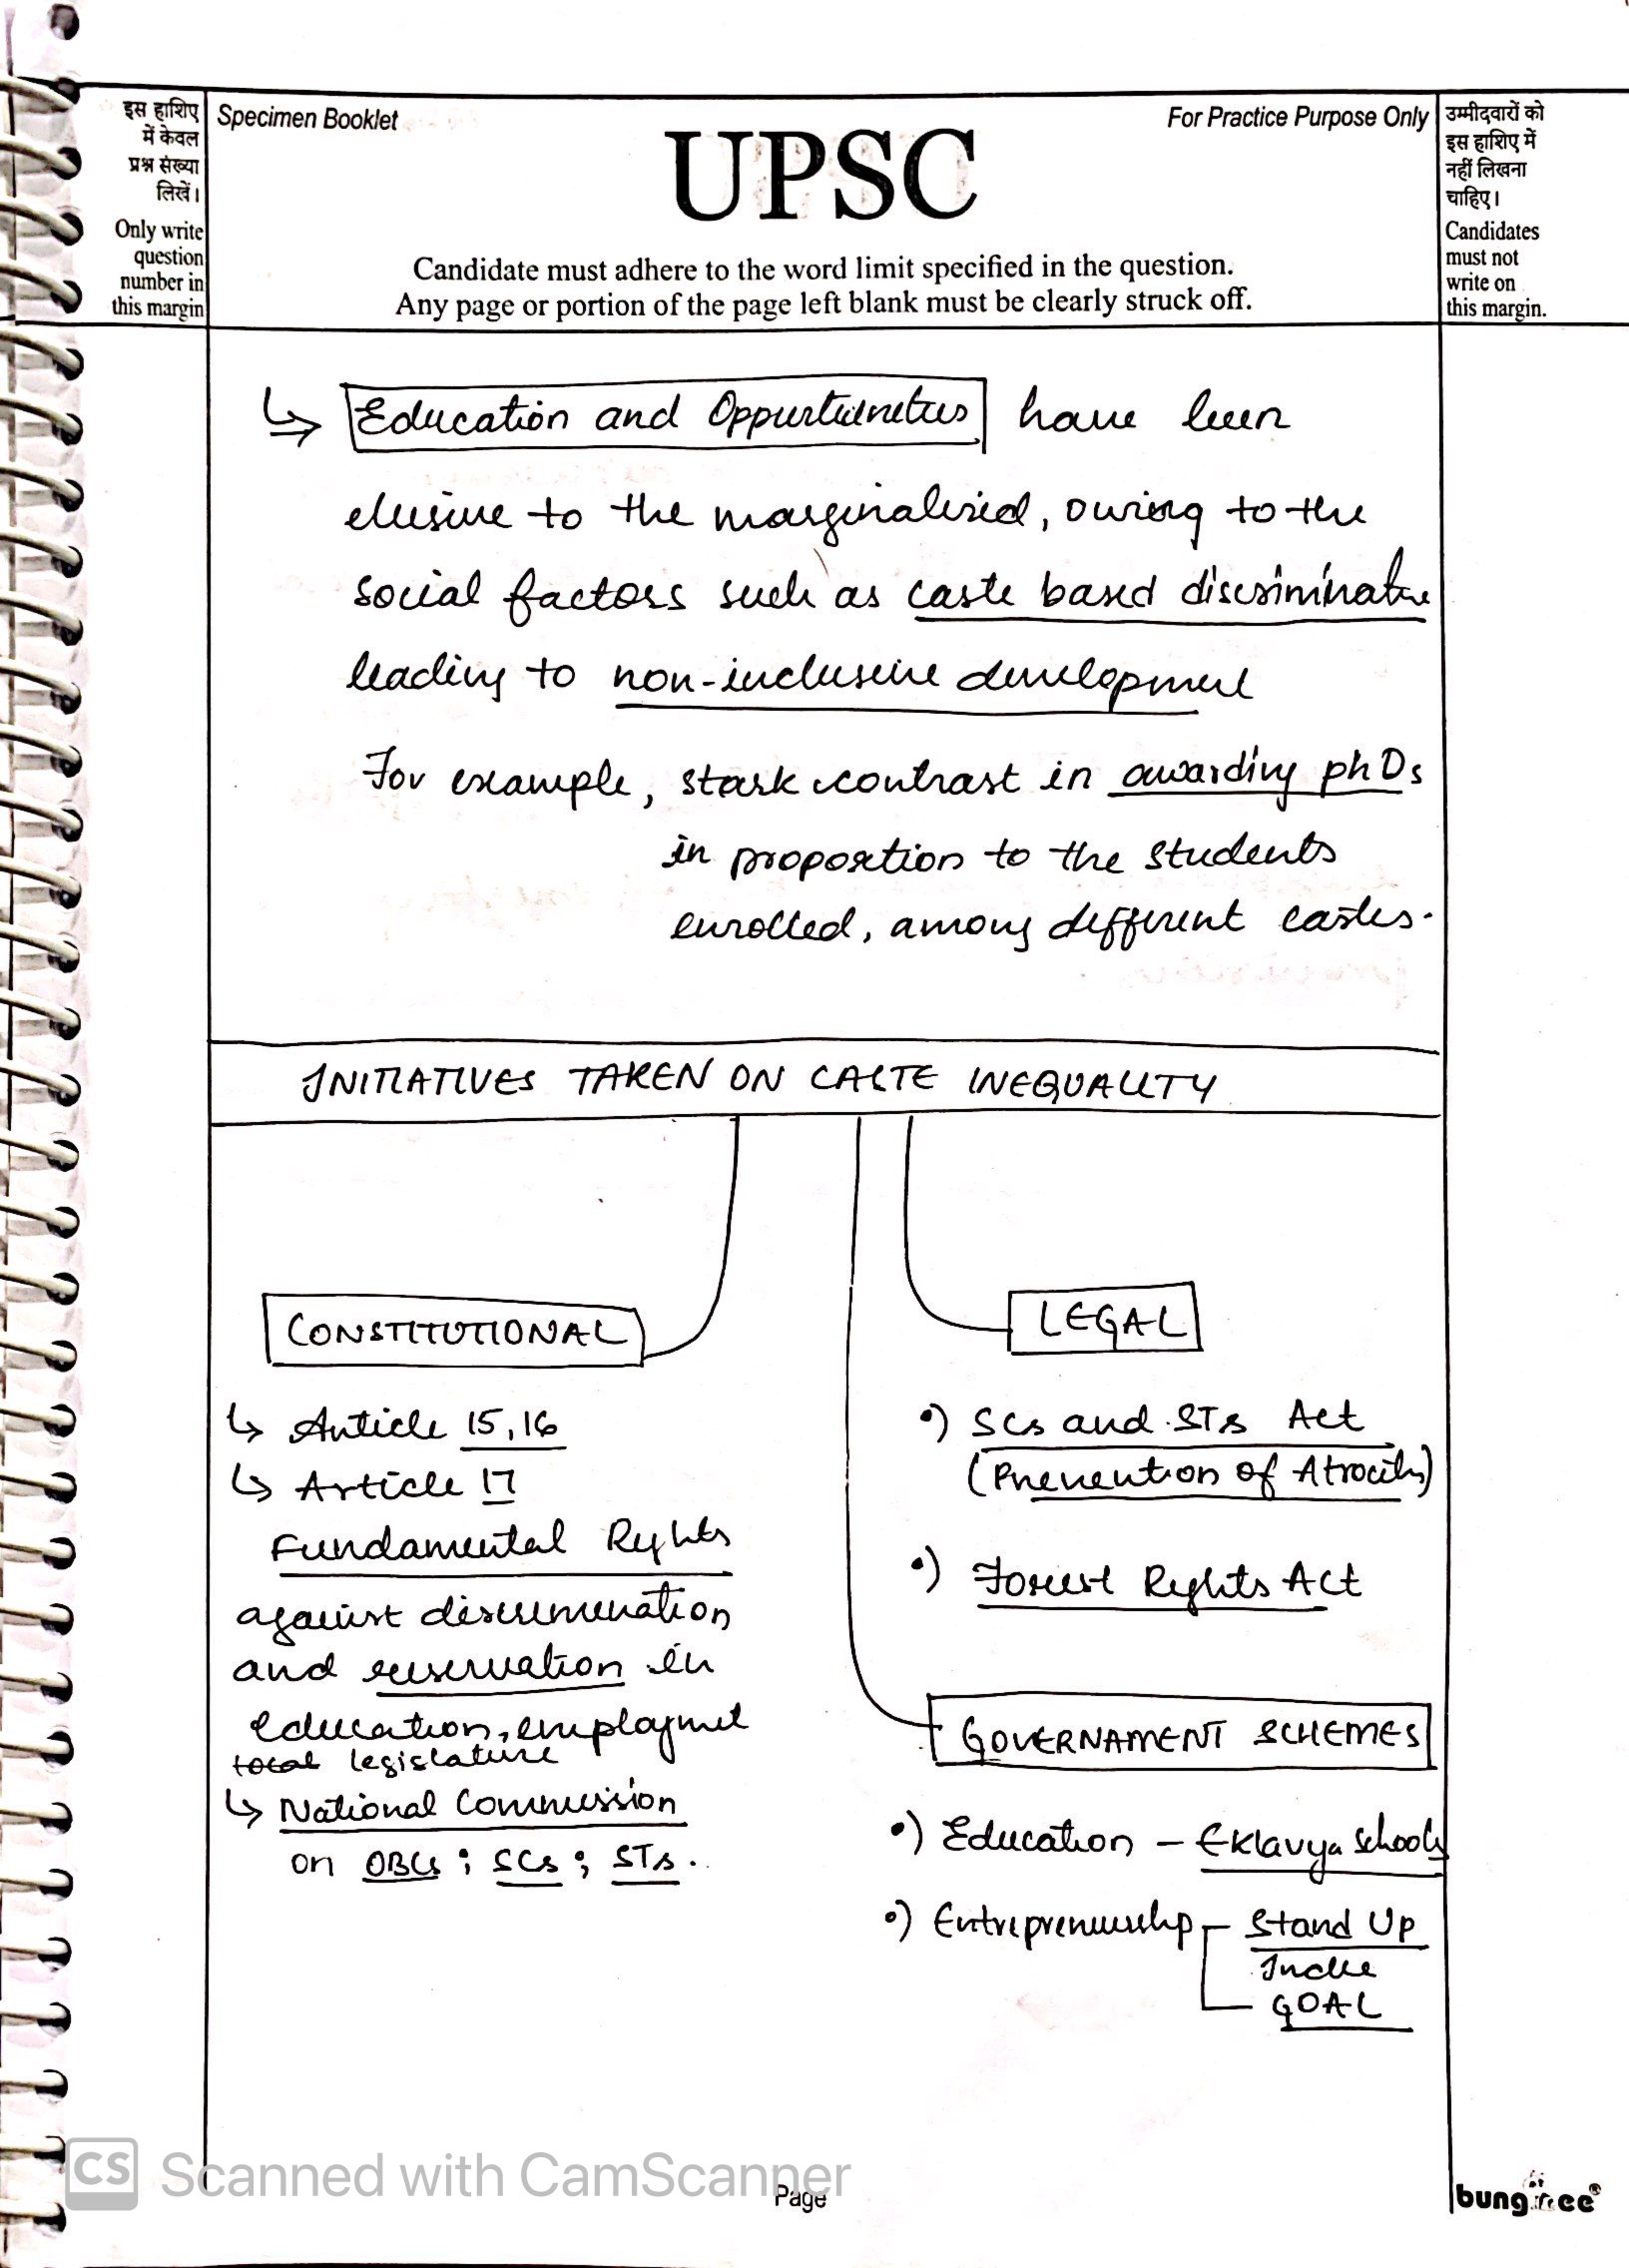 इस हाशिए
में केवल
प्रश्न संख्या
लिखें।
Only write
question
number in
this margin
Specimen Booklet
For Practice Purpose Only
UPSC
Candidate must adhere to the word limit specified in the question.
Any page or portion of the page left blank must be clearly struck off.
उम्मीदवारों को
इस हाशिए में
नहीं लिखना
चाहिए।
Candidates
must not
write on
this margin.
↳ Education and Oppurtunities have been
elusive to the marginalised, owing to the
social factors such as caste based discrimination
leading to non-inclusive development
For example, stark contrast in awarding phDs
in proportion to the students
enrolled, among different castes.
INITIATIVES TAKEN ON CASTE INEQUALITY
CONSTITUTIONAL
↳ Article 15, 16
↳ Article 17
Fundamental Rights
against discrimination
and reservation in
education, employment
local legislature
↳ National Commission
on OBCs ; SCs ; STs.
LEGAL
•) SCs and STs Act
(Prevention of Atrocity)
•) Forest Rights Act
GOVERNAMENT SCHEMES
•) Education - Eklavya schools
•) Entrepreneurship - Stand Up
India
GOAL
CS Scanned with CamScanner
Page
bungree®